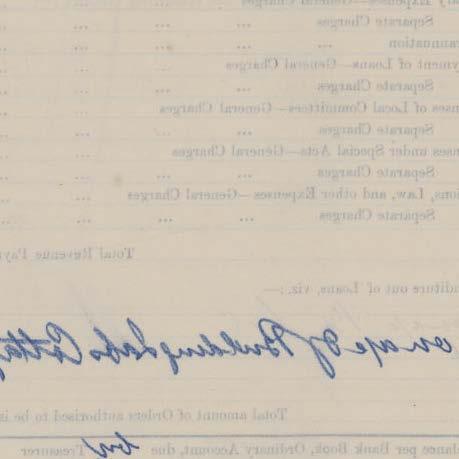 ary Expenses—General Charges ... ...
Separate Charges ... ... ...
rannuation ... ... ... ...
yment of Loans—General Charges ... ...
Separate Charges ... ... ...
nses of Local Committees—General Charges ...
Separate Charges ... ... ...
nses under Special Acts—General Charges ...
Separate Charges ... ... ...
tions, Law, and other Expenses—General Charges ...
Separate Charges ... ... ...
Total Revenue Pay
nditure out of Loans, viz.:—
of Building Labs Cotta
Total amount of Orders authorised to be is
lance per Bank Book, Ordinary Account, due by Treasurer